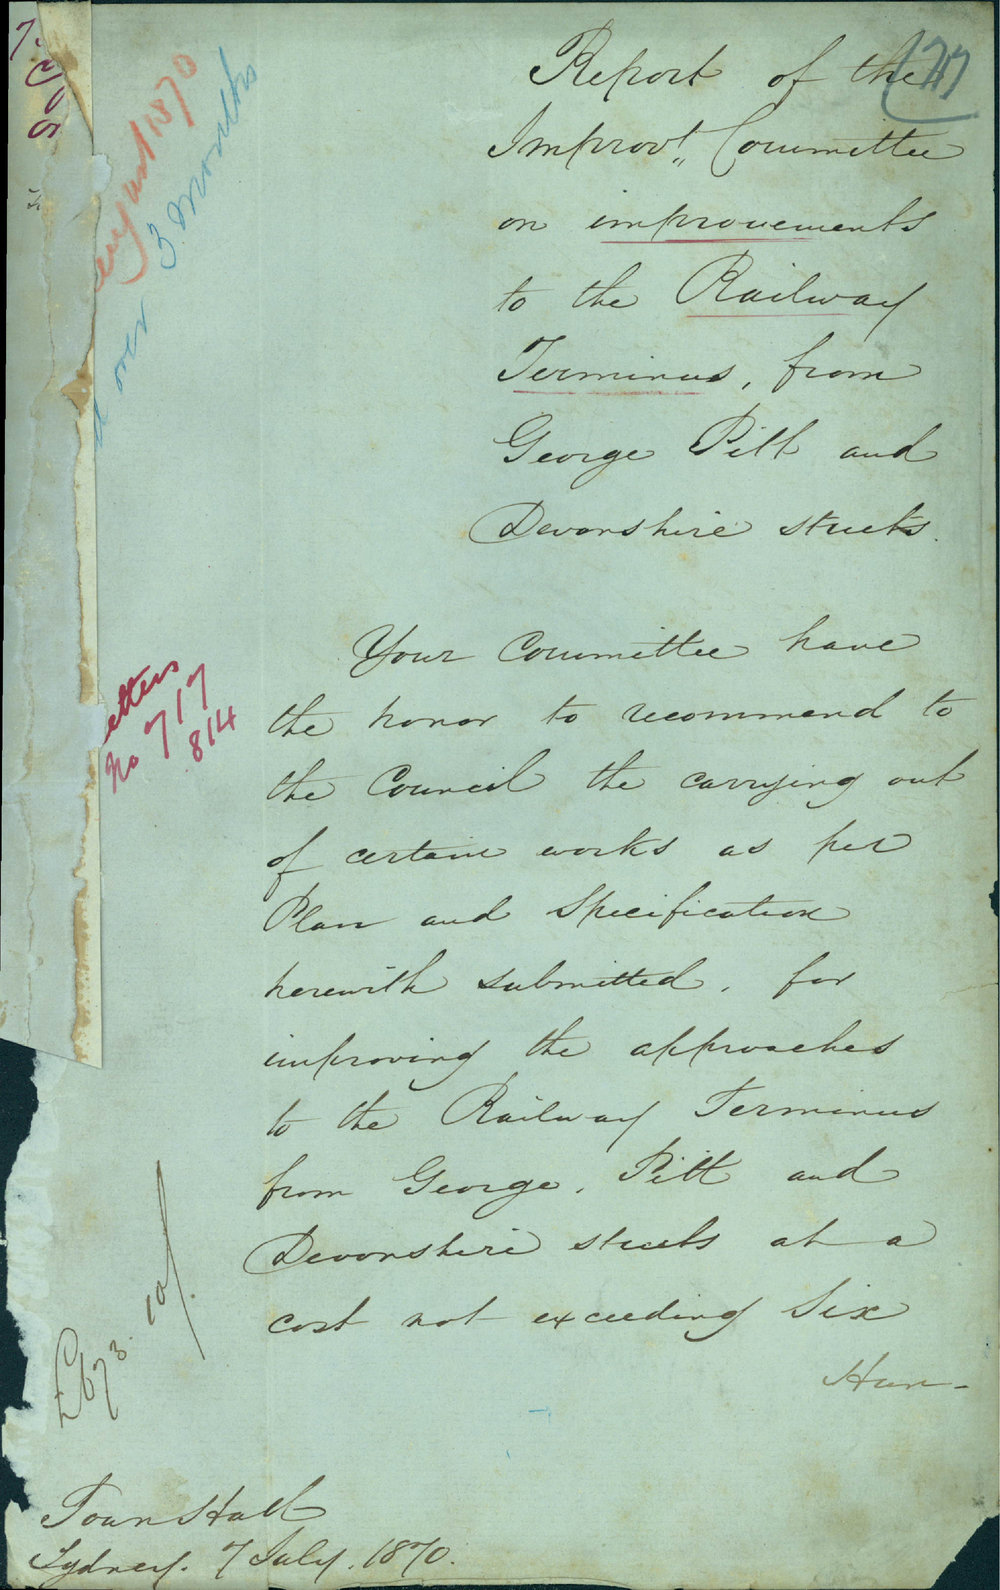 717
Report of the
Improvt,, Committee
on improvements
to the Railway
Terminus, from
George Pitt and
Devonshire streets.
3 Months
over
1870
Your Committee have
the honor to recommend to
the Council the carrying out
of certain works as per
Plan and Specification
herewith submitted, for
improving the approaches
to the Railway Terminus
from George, Pitt and
Devonshire streets at a
cost not exceeding Six
Hun-
etters
No 717
814
£673.10/.
Town Hall
Sydney. 7 July. 1870.